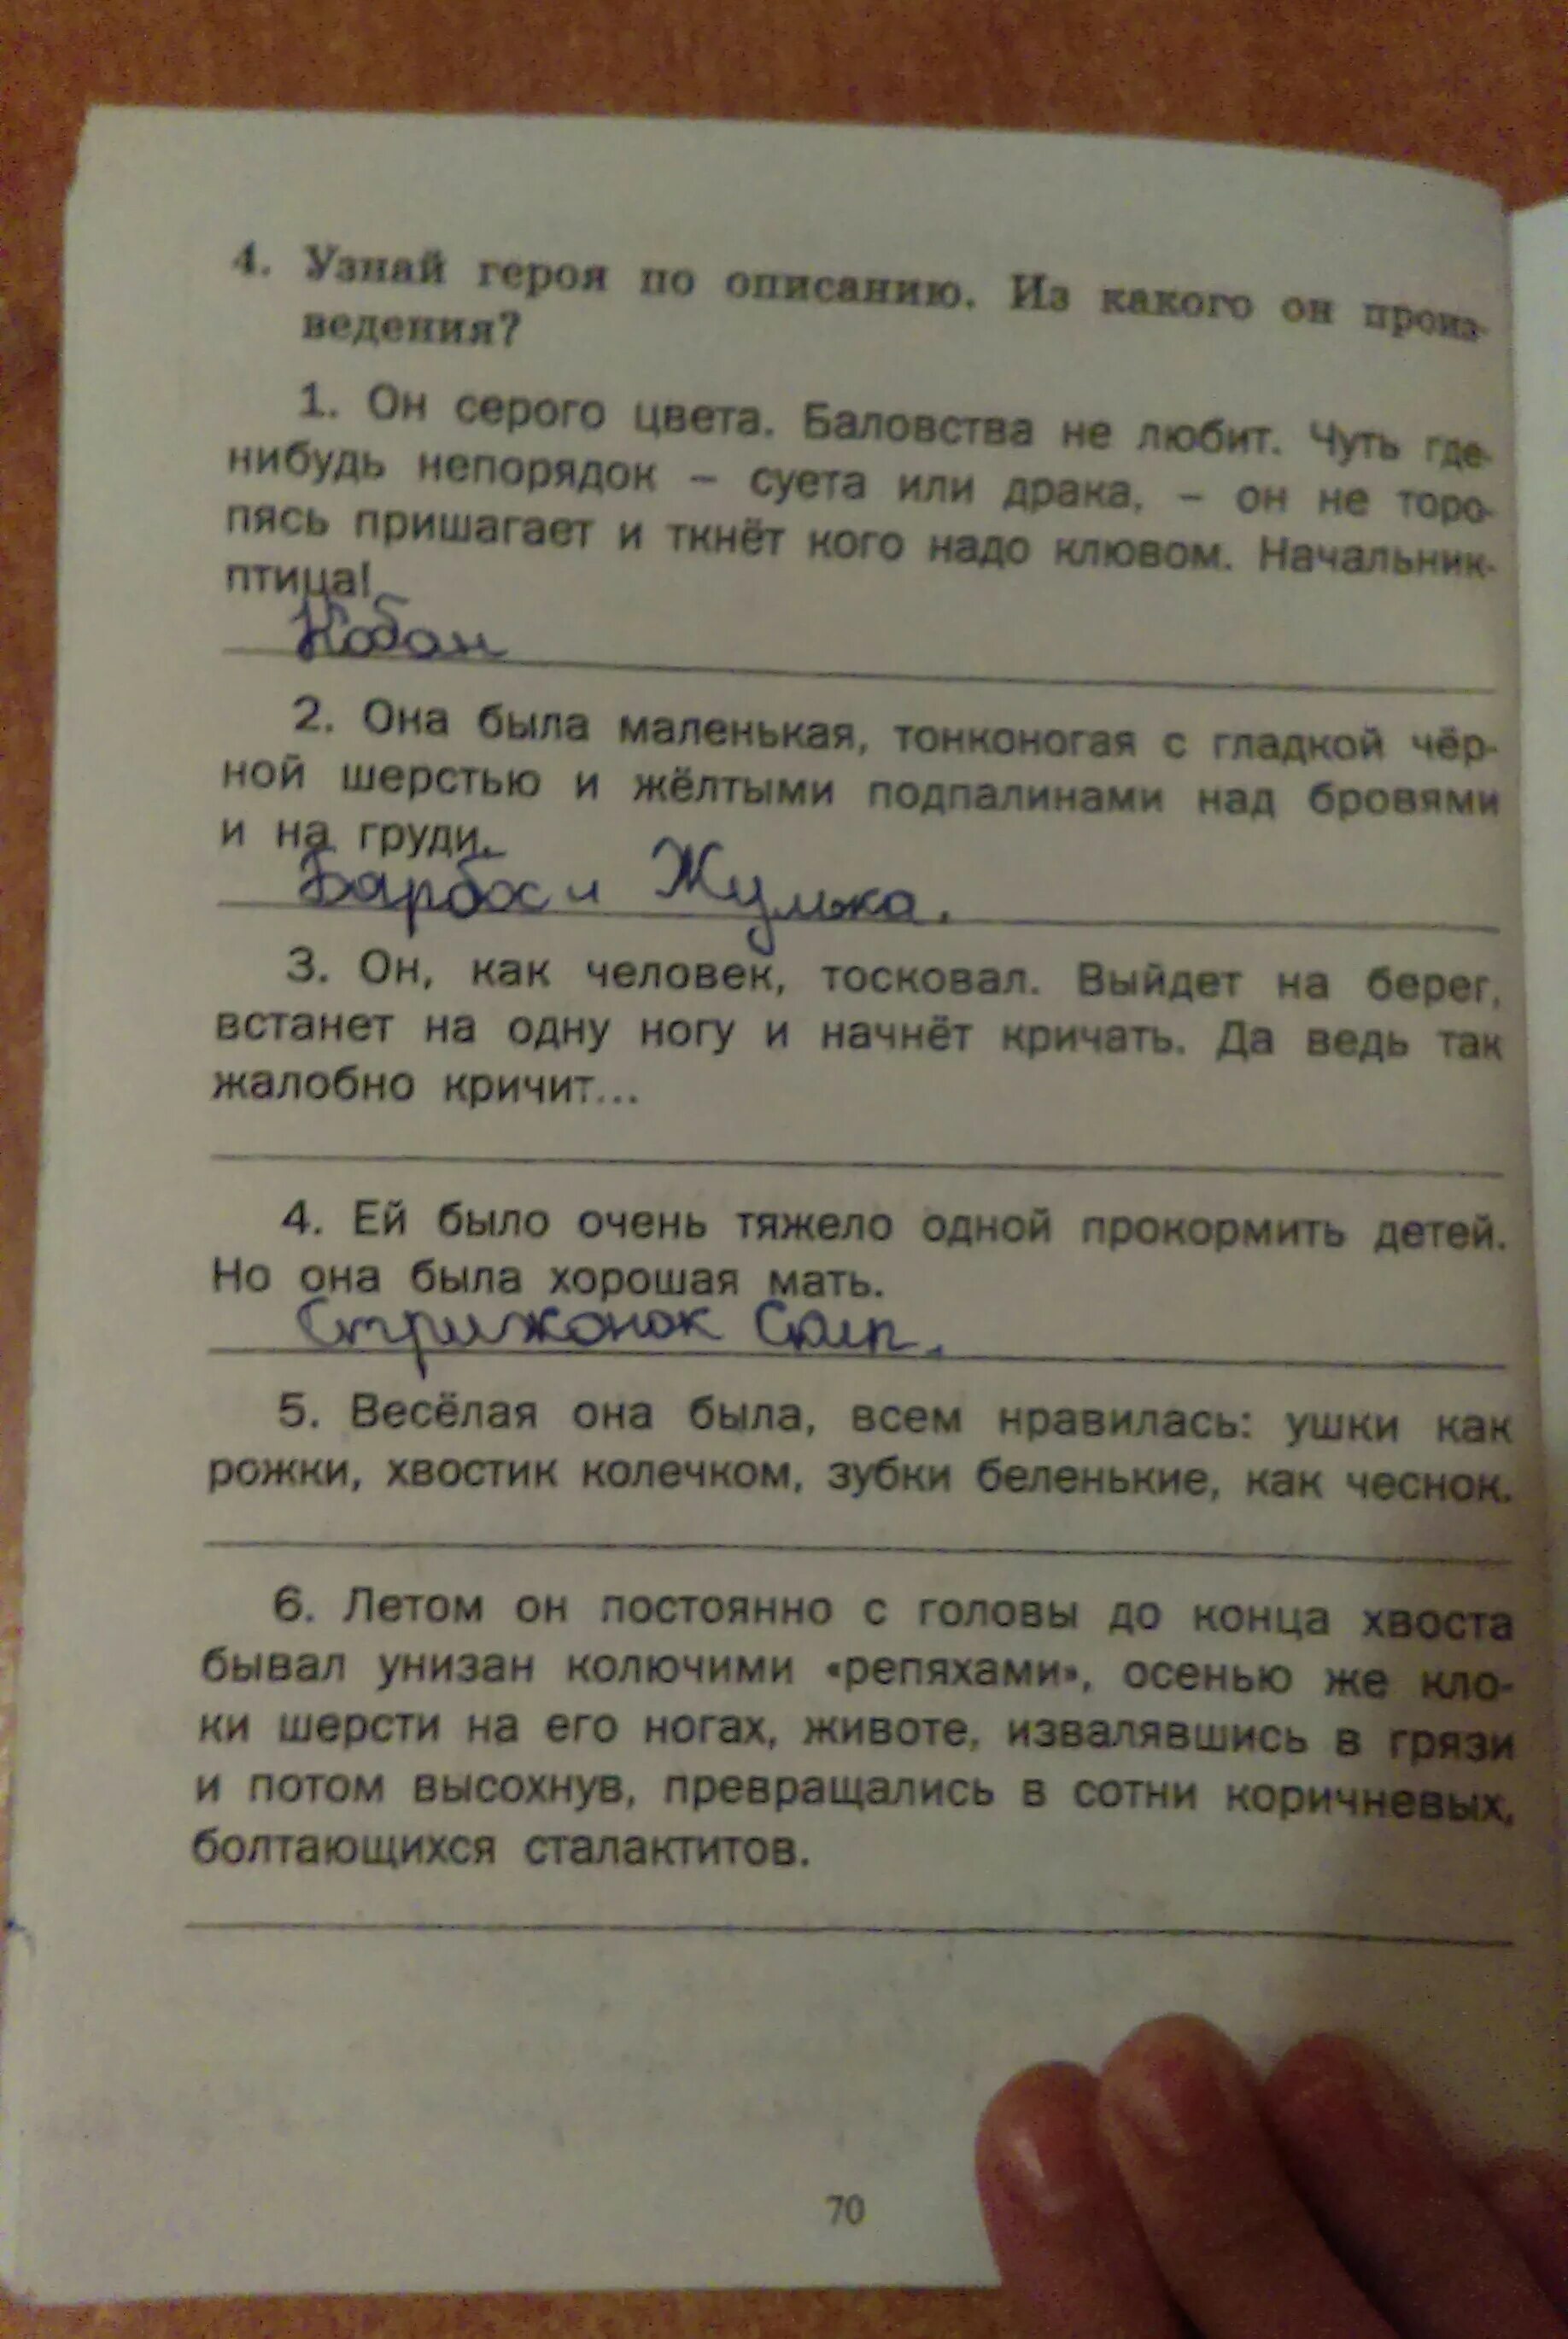 4. Узнай героя по описанию. Из какого он произ-
ведения?
1. Он серого цвета. Баловства не любит. Чуть где-
нибудь непорядок – суета или драка, – он не торо-
пясь пришагает и ткнёт кого надо клювом. Начальник-
птица!
Кабан
2. Она была маленькая, тонконогая с гладкой чёр-
ной шерстью и жёлтыми подпалинами над бровями
и на груди.
Барбос и Жулька.
3. Он, как человек, тосковал. Выйдет на берег,
встанет на одну ногу и начнёт кричать. Да ведь так
жалобно кричит...
4. Ей было очень тяжело одной прокормить детей.
Но она была хорошая мать.
Стрижонок Скип.
5. Весёлая она была, всем нравилась: ушки как
рожки, хвостик колечком, зубки беленькие, как чеснок.
6. Летом он постоянно с головы до конца хвоста
бывал унизан колючими «репяхами», осенью же кло-
ки шерсти на его ногах, животе, извалявшись в грязи
и потом высохнув, превращались в сотни коричневых,
болтающихся сталактитов.
70